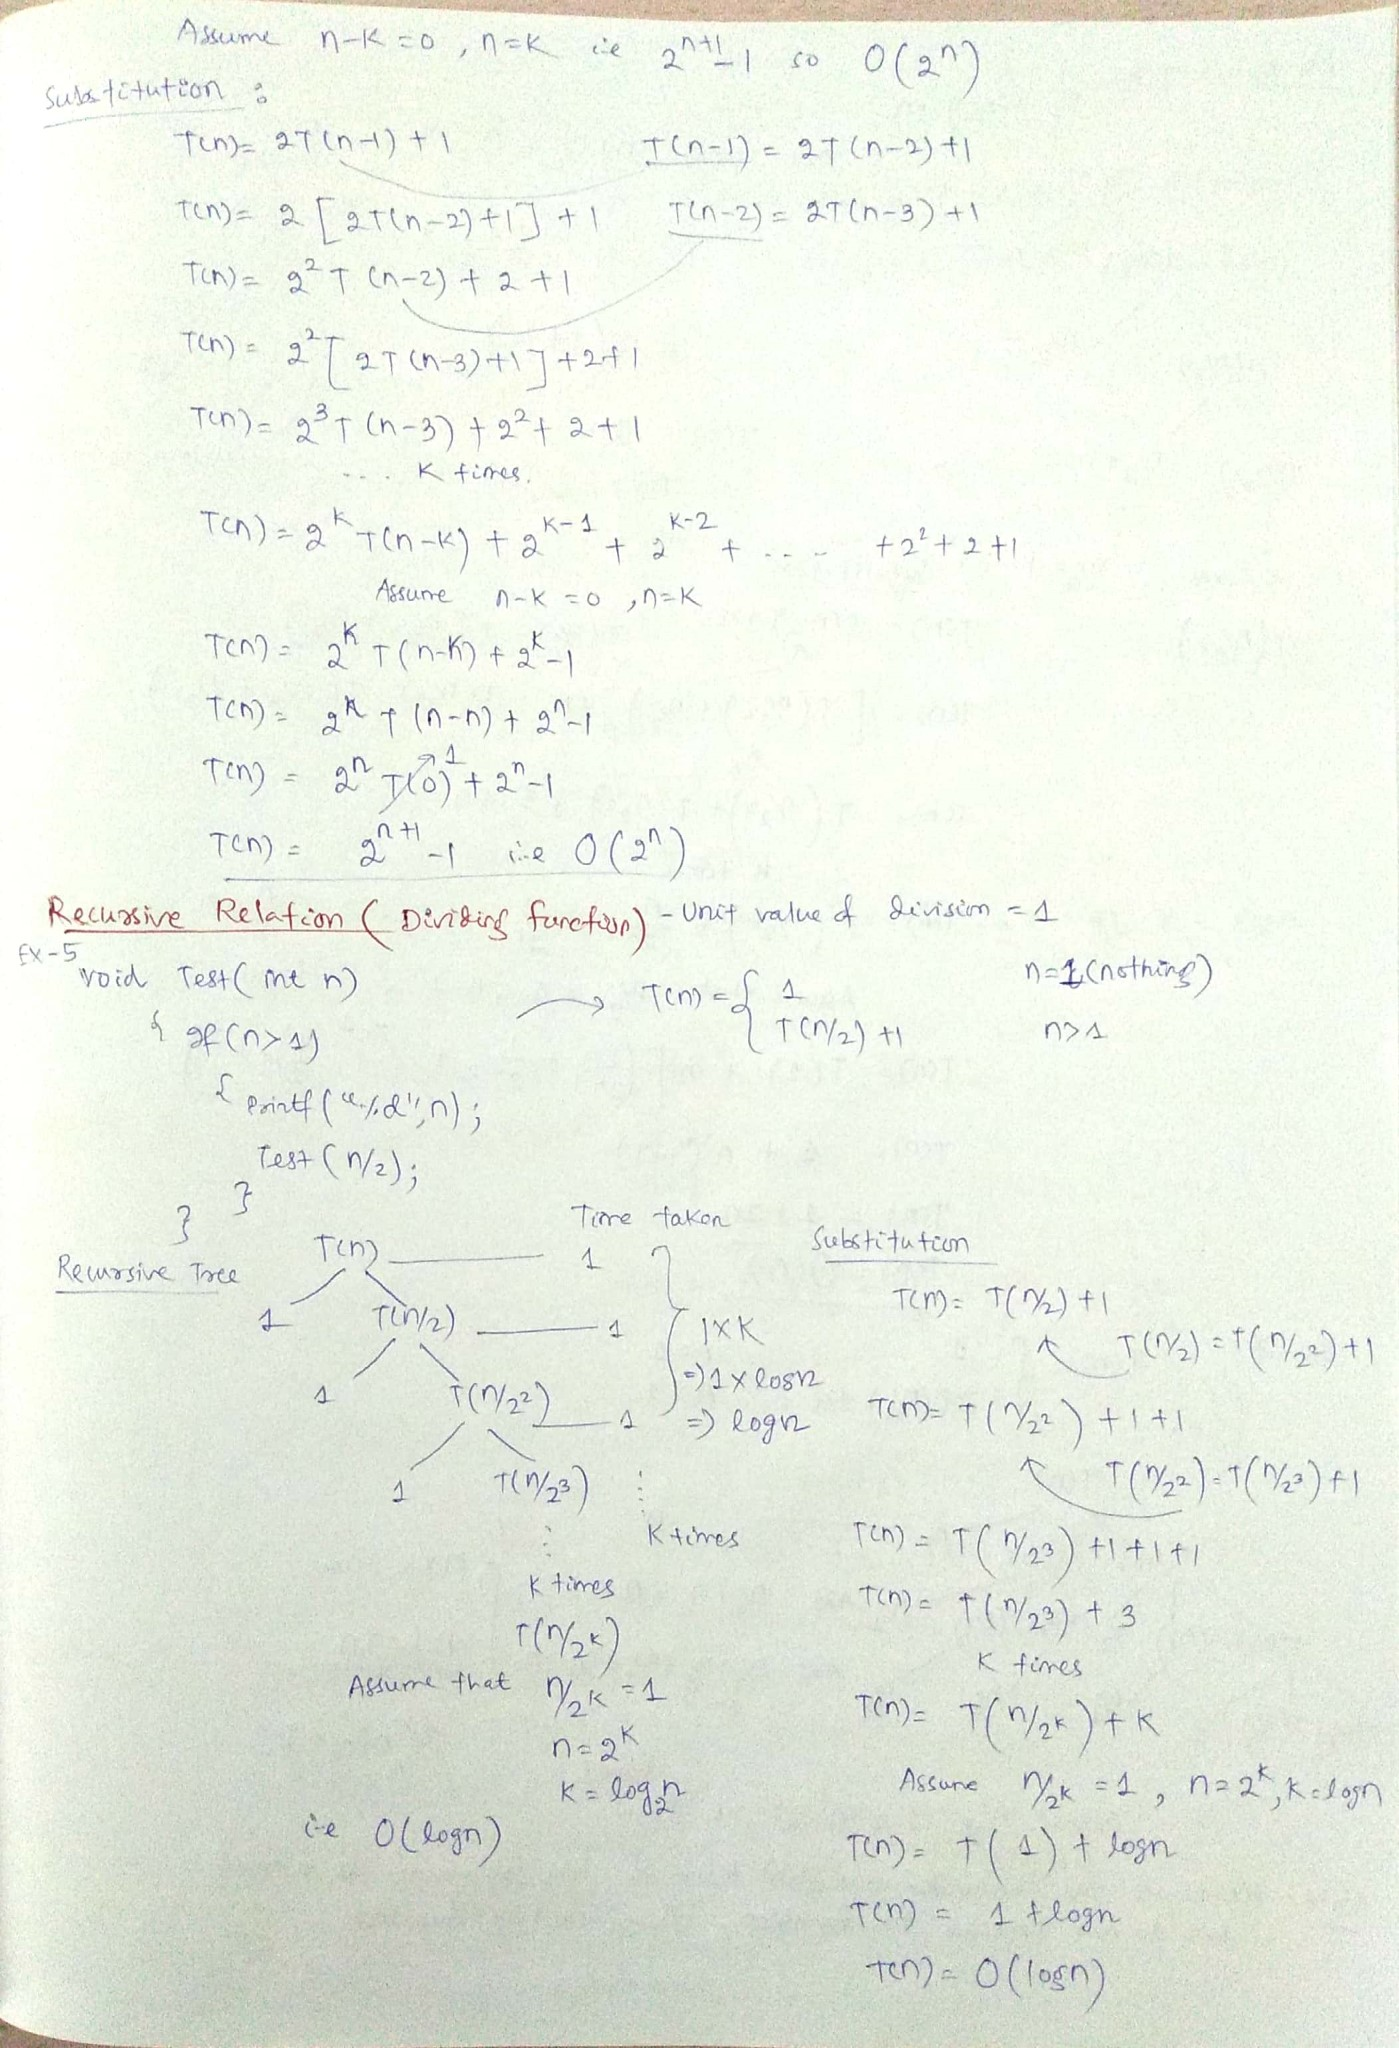 Assume n-K=0, n=K i.e 2^(n+1)-1 so O(2^n)
Substitution :
T(n)= 2T(n-1) + 1 T(n-1) = 2T(n-2)+1
T(n)= 2[2T(n-2)+1] + 1 T(n-2) = 2T(n-3)+1
T(n)= 2²T(n-2) + 2 + 1
T(n)= 2²[2T(n-3)+1]+2+1
T(n)= 2³T(n-3) + 2² + 2 + 1
.... K times.
T(n) = 2^K T(n-K) + 2^(K-1) + 2^(K-2) + .... + 2² + 2 + 1
Assume n-K=0, n=K
T(n) = 2^K T(n-K) + 2^K-1
T(n) = 2^n T(n-n) + 2^n-1
T(n) = 2^n T(0) 1 + 2^n-1
T(n) = 2^(n+1)-1 i.e O(2^n)
Recursive Relation (Dividing function) - Unit value of division = 1
Ex-5
void Test(int n)
{ if(n>1)
{ printf("%d",n);
Test(n/2);
}
}
→ T(n) = { 1 n=1 (nothing)
T(n/2)+1 n>1
Recursive Tree
Time taken
T(n) — 1
1 T(n/2) — 1
1 T(n/2²) — 1
1 T(n/2³)
1×K
=> 1×logn
=> logn
⋮ K times
⋮ K times
T(n/2^K)
Assume that n/2^K = 1
n=2^K
K = log₂n
i.e O(logn)
Substitution
T(n)= T(n/2)+1
T(n/2) = T(n/2²)+1
T(n)= T(n/2²) +1+1
T(n/2²)=T(n/2³)+1
T(n) = T(n/2³) +1+1+1
T(n)= T(n/2³) + 3
K times
T(n)= T(n/2^K)+K
Assume n/2^K = 1, n=2^K, K=logn
T(n)= T(1) + logn
T(n) = 1+logn
T(n)= O(logn)